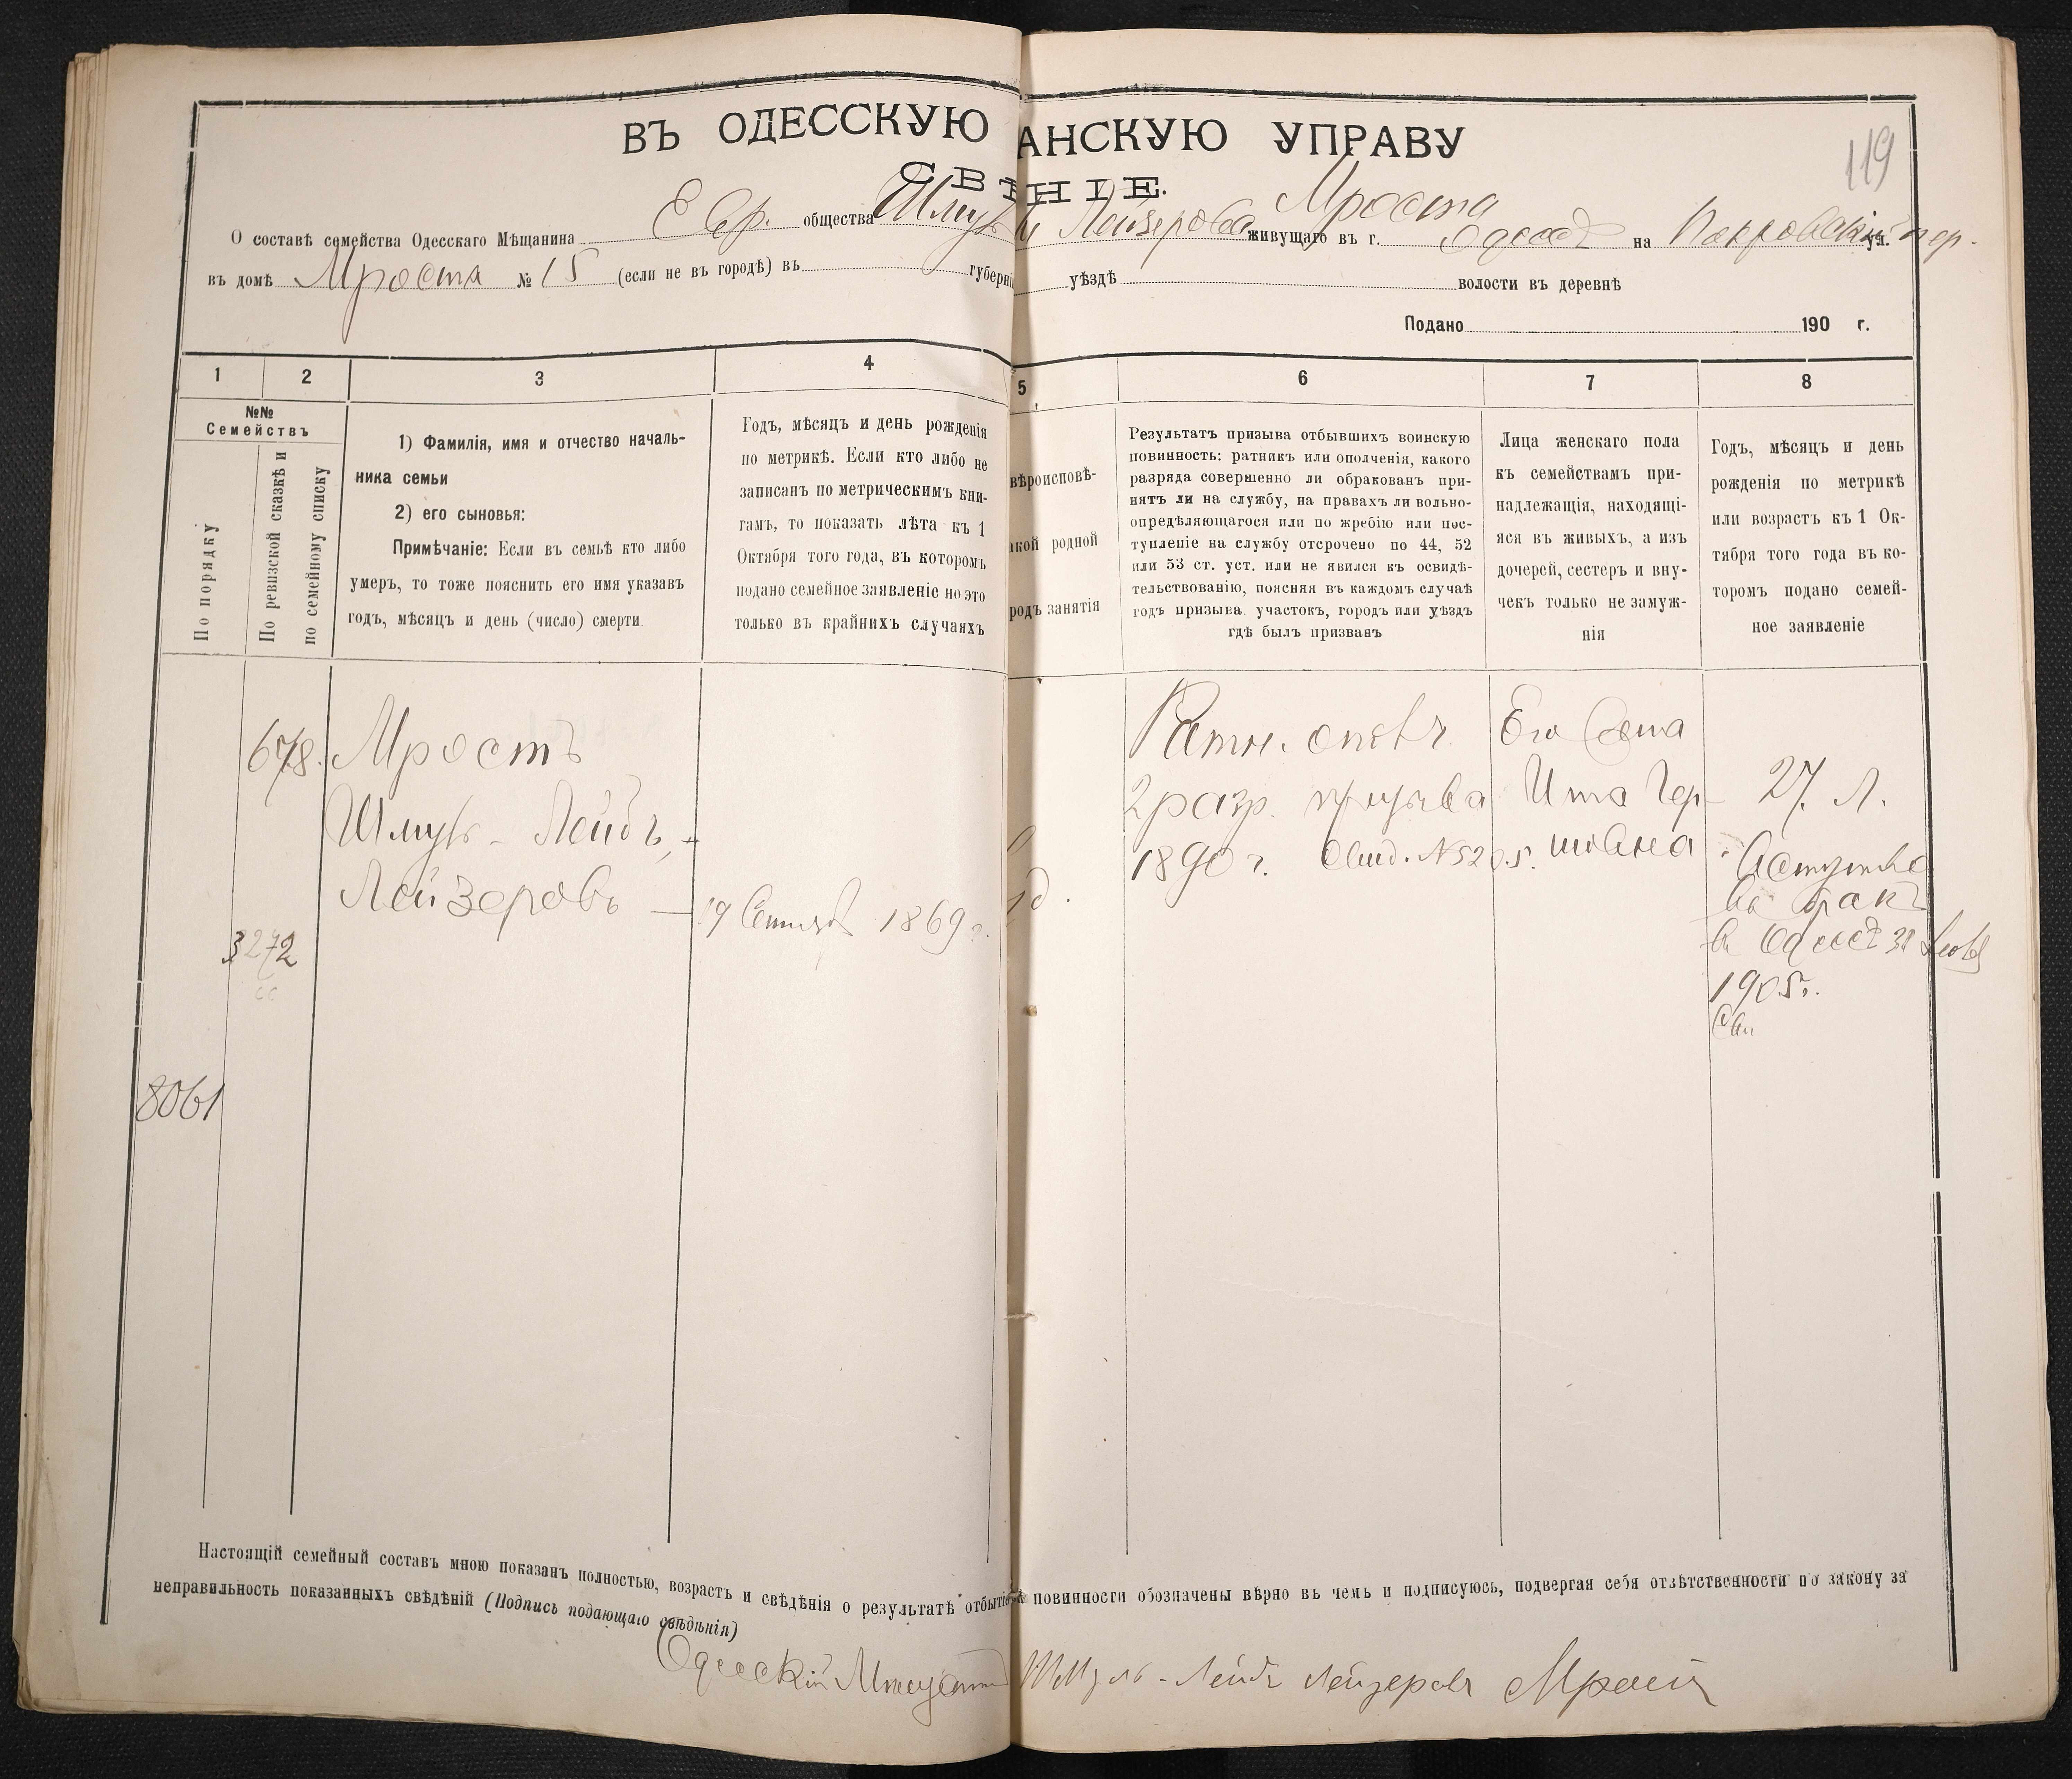 119
ВЪ ОДЕССКУЮ АНСКУЮ УПРАВУ
СВ НІЕ.
О составѣ семейства Одесскаго Мѣщанина Евр. общества Шмуль Лейзерова Мроста живущаго въ г. Одессѣ на Покровскій ул. пер.
въ домѣ Мроста № 15 (если не въ городѣ) въ губерні уѣздѣ волости въ деревнѣ
Подано 190 г.
1 2 3 4 5 6 7 8
№№
Семействъ
По порядку
По ревизской сказкѣ и
по семейному списку
1) Фамилія, имя и отчество началь-
ника семьи
2) его сыновья:
Примѣчаніе: Если въ семьѣ кто либо
умеръ, то тоже пояснить его имя указавъ
годъ, мѣсяцъ и день (число) смерти.
Годъ, мѣсяцъ и день рожденія
по метрикѣ. Если кто либо не
записанъ по метрическимъ кни-
гамъ, то показать лѣта къ 1
Октября того года, въ которомъ
подано семейное заявленіе но это
только въ крайнихъ случаяхъ
вѣроисповѣ-
акой родной
родъ занятія
Результатъ призыва отбывшихъ воинскую
повинность: ратникъ или ополченія, какого
разряда совершенно ли обракованъ при-
нятъ ли на службу, на правахъ ли вольно-
опредѣляющагося или по жребію или пос-
тупленіе на службу отсрочено по 44, 52
или 53 ст. уст. или не явился къ освидѣ-
тельствованію, поясняя въ каждомъ случаѣ
годъ призыва. участокъ, городъ или уѣздъ
гдѣ былъ призванъ
Лица женскаго пола
къ семействамъ при-
надлежащія, находящі-
яся въ живыхъ, а изъ
дочерей, сестеръ и вну-
чекъ только не замуж-
нія
Годъ, мѣсяцъ и день
рожденія по метрикѣ
или возрастъ къ 1 Ок-
тября того года въ ко-
торомъ подано семей-
ное заявленіе
678.
Мростъ
Шмуль-Лейбъ
Лейзеровъ
3272
8061
19 Сентября 1869 г.
Ратн. ополч.
2 разр. призыва
1890 г. Свид. № 5205.
Его жена
Ита Гер-
шовна
27 л.
Вступилъ
въ бракъ
в Одессѣ 31
1905 г.
Настоящій семейный составъ мною показанъ полностью, возрастъ и свѣдѣнія о результатѣ отбытія повинности обозначены вѣрно въ чемъ и подписуюсь, подвергая себя отвѣтственности по закону за
неправильность показанныхъ свѣдѣній (Подпись подающаго свѣдѣнія)
Одесскій Мѣщанинъ Шмуль-Лейбъ Лейзеровъ Мростъ